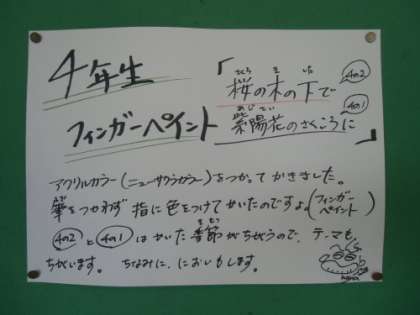 4年生
フィンガーペイント
「桜の木の下で 4の2
紫陽花のさくころに」 4の1
アクリルカラー(ニューサクラカラー)をつかってかきました。
筆をつかわず 指に色をつけてかいたのですよ。(フィンガーペイント)
4の2 と 4の1 はかいた季節がちがうので、テーマも
ちがいます。 ちなみに、においもします。